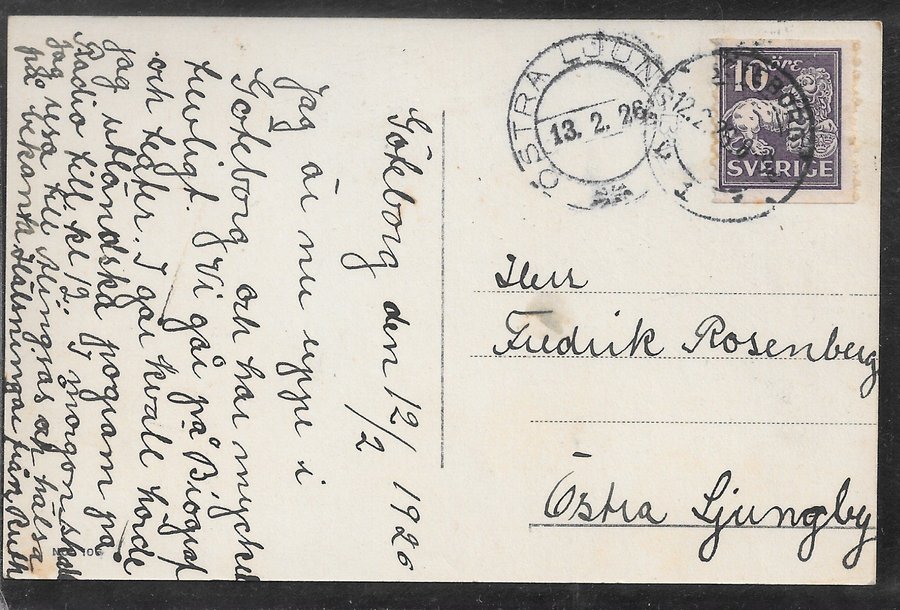 Göteborg den 12/2 1926
Jag är nu uppe i
Göteborg och har mycket
trevligt. Vi går på Biograf
och teater. I går kväll hörde
jag utländska program på
Radio till kl 12. I morgon skall
jag resa till Alingsås att hälsa
på bekanta. Hälsningar från Ruth
ÖSTRA LJUNGBY
13. 2. 26
GÖTEBORG
12.2
1
10 ÖRE
SVERIGE
Herr
Fredrik Rosenberg
Östra Ljungby